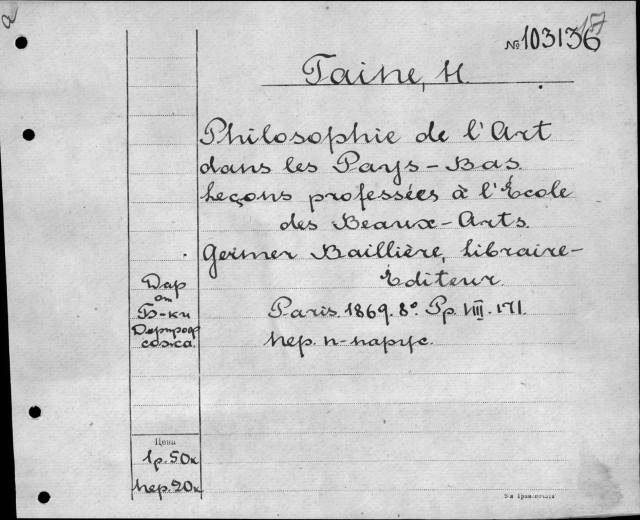 17
№103136
Taine, H.
Philosophie de l'Art
dans les Pays-Bas.
Leçons professées à l'École
des Beaux-Arts.
Germer Baillière, Libraire-
Éditeur.
Paris. 1869. 8°. Pp. VIII. 171.
пер. п-парус.
Дар
от
Б-ки
Цена
1р.50к
пер.20к